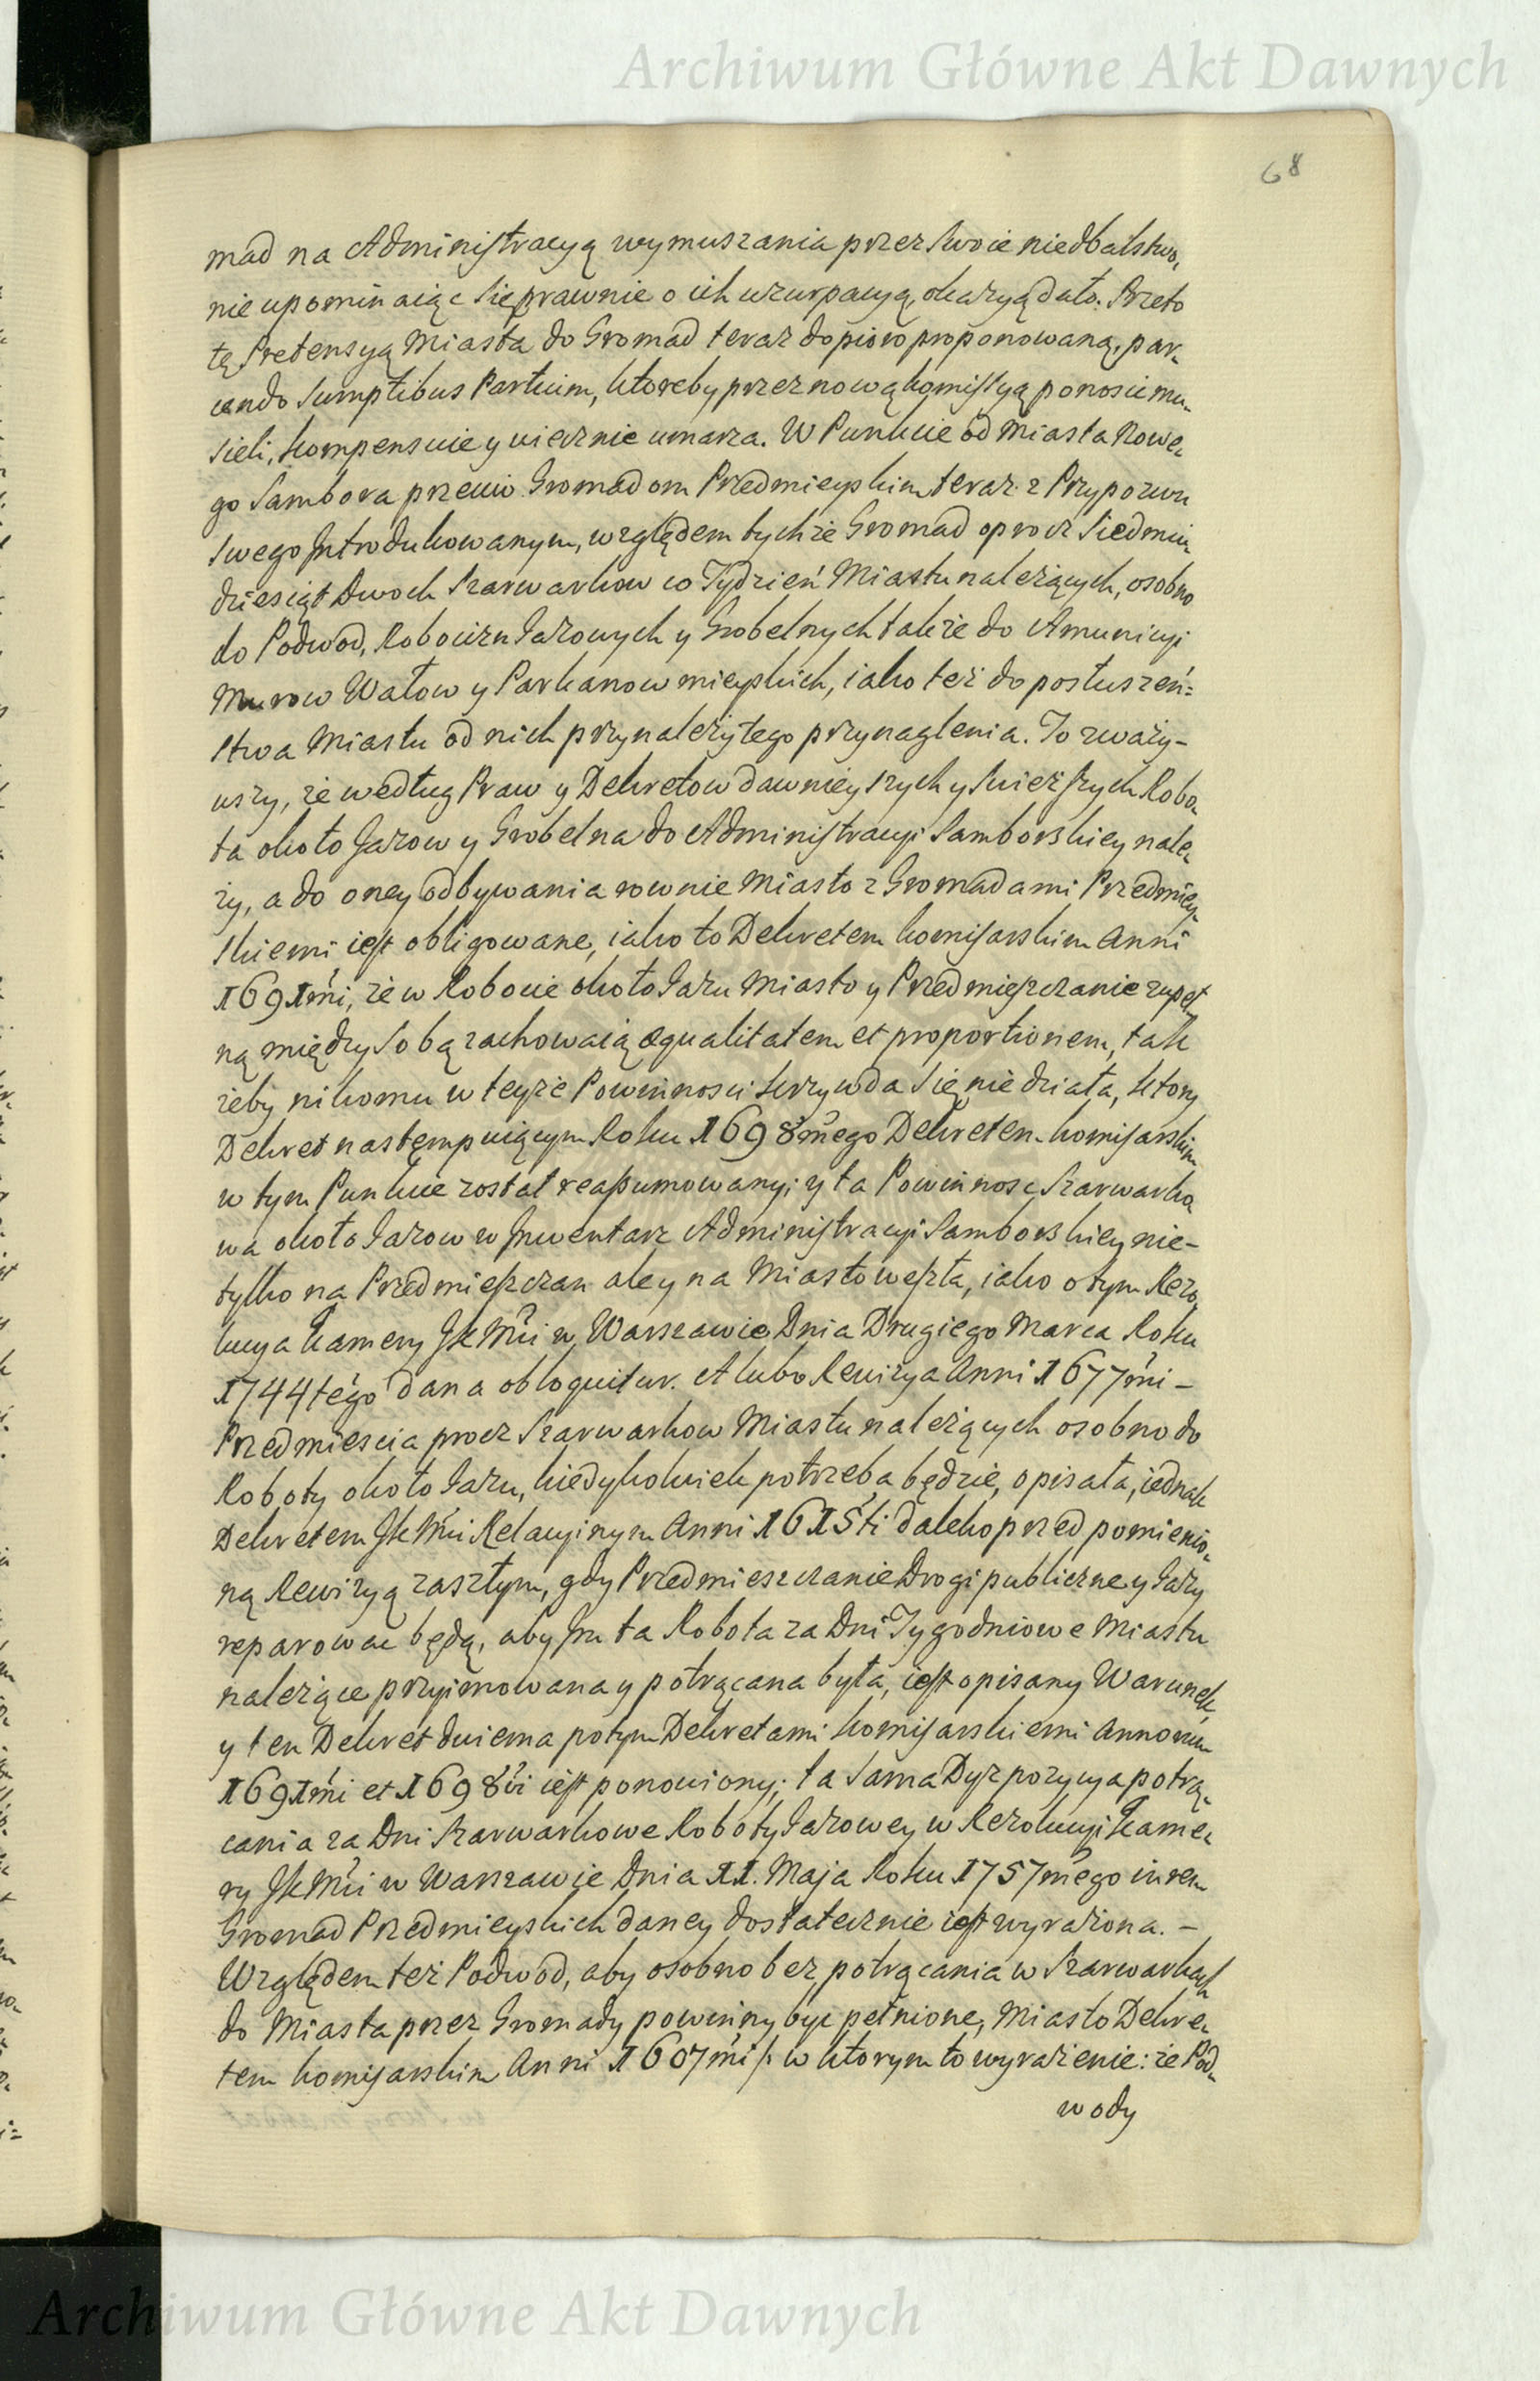 Archiwum Główne Akt Dawnych
68
mad na Administracyą wymuszania przez swoie niedbalstwo,
nie upominaiąc się prawnie o ich uzurpacyą, okazyą dało. Przeto
tę Pretensyą Miasta do Gromad teraz dopiero proponowaną, par-
cendo Sumptibus Partium, ktoreby przez nową komissyą ponosic mu-
sieli, kompensuie y wiecznie umarza. W Punkcie od Miasta Nowe-
go Sambora przeciw Gromadom Przedmieyskim teraz z Przypozwu
swego Introdukowanym, względem tychże Gromad oprocz Siedmiu-
dziesiąt Dwoch Szarwarkow co Tydzień Miastu należących, osobno
do Podwod, Robocizn Jazowych y Grobelnych także do Amunicyi
Murow Wałow y Parkanow mieyskich, iako też do posłuszeń=
stwa Miastu od nich przynależytego przynaglenia. To zważy-
wszy, że według Praw y Dekretow dawnieyszych y swieższych Robo-
ta około Jazow y Grobelna do Administracyi Samborskiey nale-
ży, a do oney odbywania rownie Miasto z Gromadami Przedmiey-
skiemi iest obligowane, iako to Dekretem komisarskim Anni
1691mi, że w Robocie około Jazu Miasto y Przedmieszczanie zupeł
ną między sobą zachowaią æqualitatem et proportionem, tak
żeby nikomu w teyże Powinnosci krzywda się nie działa, ktory
Dekret nastempuiącym Roku 1698mego Dekretem komisarskim
w tym Punkcie został reassumowany; y ta Powinnosc Szarwarko
wa około Jazow w Inwentarz Administracyi Samborskiey nie-
tylko na Przedmieszczan ale y na Miasto weszła, iako o tym Rezo-
lucya Kamery JkMci w Warszawie Dnia Drugiego Marca Roku
1744tego dana obloquitur. A lubo Rewizya Anni 1677mi -
Przedmiescia procz Szarwarkow Miastu należących osobno do
Roboty około Jazu, kiedykolwiek potrzeba będzie, opisała, iednak
Dekretem JkMci Relacyinym Anni 1615ti daleko przed pomienio-
ną Rewizyą zaszłym, gdy Przedmieszczanie Drogi publiczne y Jazy
reparowac będą, aby im ta Robota za Dni Tygodniowe Miastu
należące przyimowana y potrącana była, iest opisany Warunek,
y ten Dekret dwiema potym Dekretami komisarskiemi Annorum
1691mi et 1698vi iest ponowiony; ta sama Dyspozycya potrą-
cania za Dni Szarwarkowe Roboty Jazowey w Rezolucyi Kame-
ry JkMci w Warszawie Dnia 11. Maja Roku 1757mego in rem
Gromad Przedmieyskich daney dostatecznie iest wyrażona. -
Względem też Podwod, aby osobno bez potrącania w Szarwarkach
do Miasta przez Gromady powinny byc pełnione, Miasto Dekre-
tem komisarskim Anni 1607mi /: w ktorym to wyrażenie: że Pod-
wody
Archiwum Główne Akt Dawnych